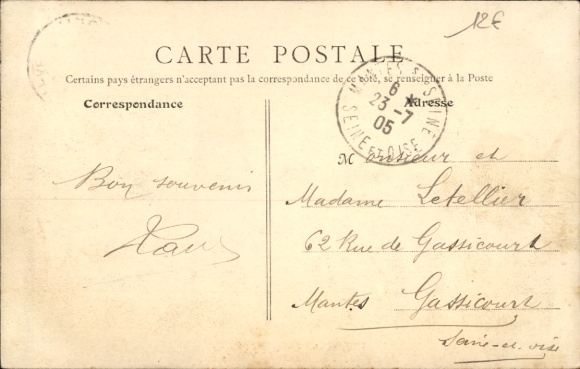 12€
CARTE POSTALE
Certains pays étrangers n'acceptant pas la correspondance de ce côté, se renseigner à la Poste
Correspondance
Adresse
MANTES S SEINE
6
23 -7
05
SEINE ET OISE
Monsieur et
Madame Letellier
62 Rue de Gassicourt
Mantes Gassicourt
Seine-et-oise
Bon souvenir